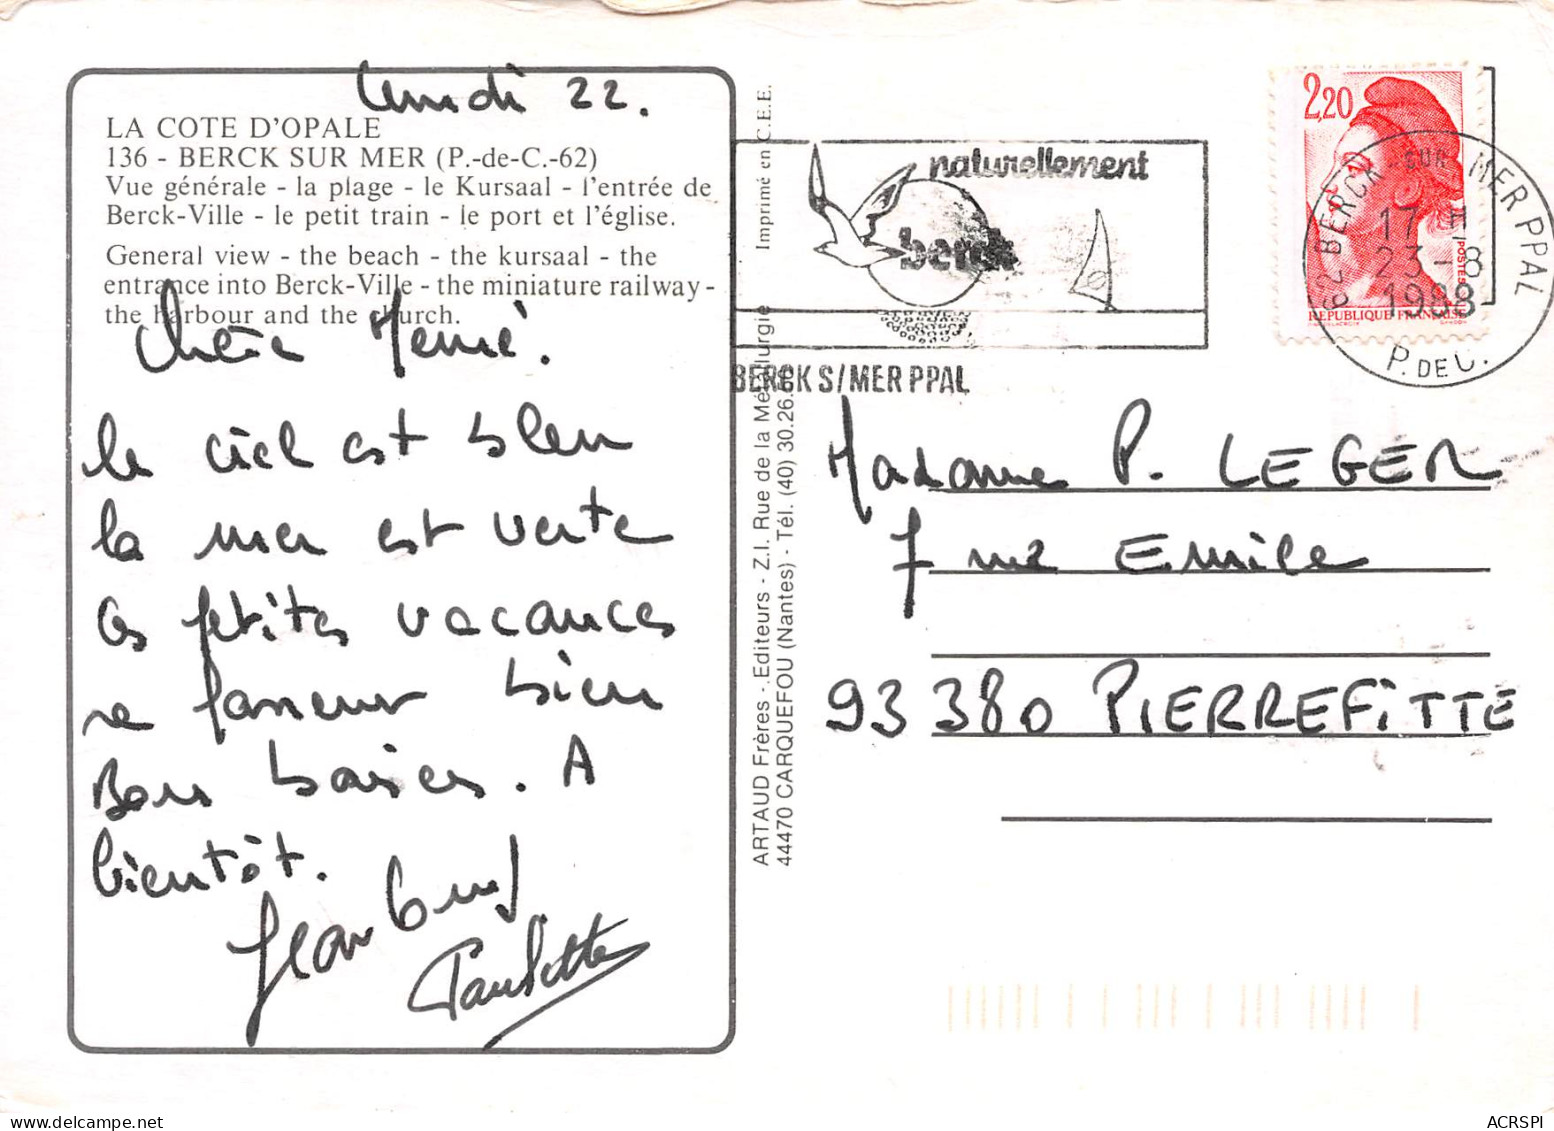 lundi 22.
LA COTE D'OPALE
136 - BERCK SUR MER (P.-de-C.-62)
Vue générale - la plage - le Kursaal - l'entrée de
Berck-Ville - le petit train - le port et l'église.
General view - the beach - the kursaal - the
entrance into Berck-Ville - the miniature railway -
the harbour and the church.
Chère Mémé.
le ciel est bleu
la mer est verte
les petites vacances
se passent bien
Bons baisers. A
bientôt.
Jean Louis
Paulette
ARTAUD Frères - Editeurs - Z.I. Rue de la Métallurgie
44470 CARQUEFOU (Nantes) - Tél. (40) 30.26.
Imprimé en C.E.E.
naturellement
berck
BERCK S/MER PPAL
2,20
POSTES
REPUBLIQUE FRANÇAISE
62 BERCK-SUR-MER PPAL
17 H
23-8
1988
P. DE C.
Madame P. LEGER
7 rue Emile
93380 PIERREFITTE
ACRSPI